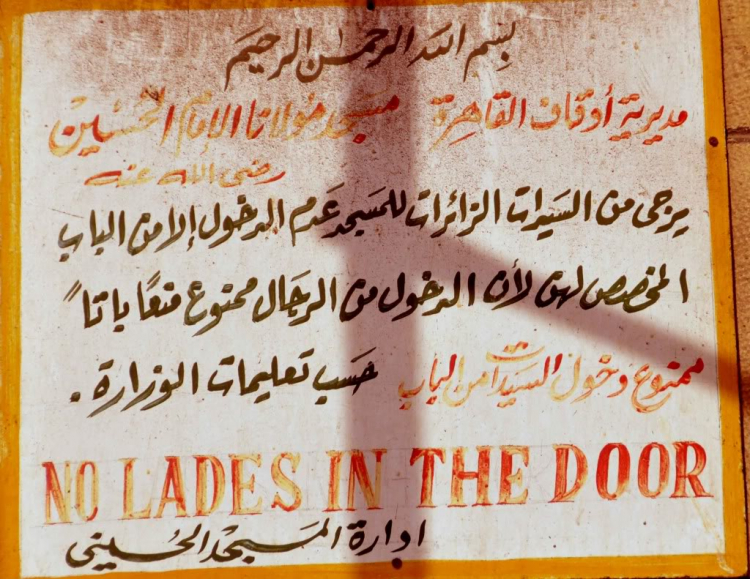 بسم الله الرحمن الرحيم
مديرية أوقاف القاهرة مسجد مولانا الإمام الحسين
رضى الله عنه
يرجى من السيدات الزائرات للمسجد عدم الدخول إلا من الباب
المخصص لهن لأن الدخول من الرجال ممنوع منعًا باتاً
ممنوع دخول السيدات من الباب حسب تعليمات الوزارة .
NO LADES IN THE DOOR
ادارة المسجد الحسينى